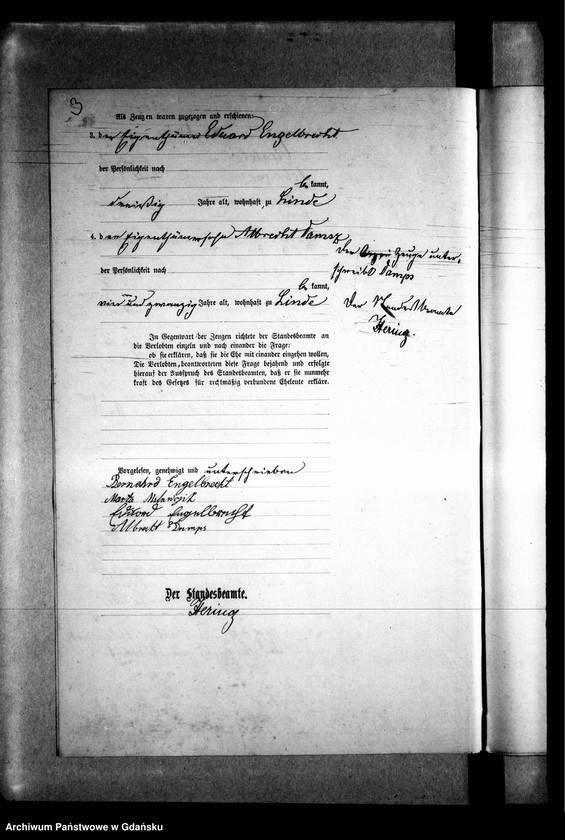 3
Als Zeugen waren zugezogen und erschienen:
3. der Eigenthümer Eduard Engelbrecht
der Persönlichkeit nach
be kannt,
dreißig Jahre alt, wohnhaft zu Linde
4. der Eigenthümersohn Albrecht Damsz
der Persönlichkeit nach
be kannt,
vier und zwanzig Jahre alt, wohnhaft zu Linde
Der Zeuge unter,
schreibt Damps
Der Standesbeamte
Hering.
In Gegenwart der Zeugen richtete der Standesbeamte an
die Verlobten einzeln und nach einander die Frage:
ob sie erklären, daß sie die Ehe mit einander eingehen wollen,
Die Verlobten beantworteten diese Frage bejahend und erfolgte
hierauf der Ausspruch des Standesbeamten, daß er sie nunmehr
kraft des Gesetzes für rechtmäßig verbundene Eheleute erkläre.
Vorgelesen, genehmigt und unterschrieben
Bernahrd Engelbrecht
Martha
Eduard Engelbrecht
Albrecht Damps
Der Standesbeamte.
Hering
Archiwum Państwowe w Gdańsku